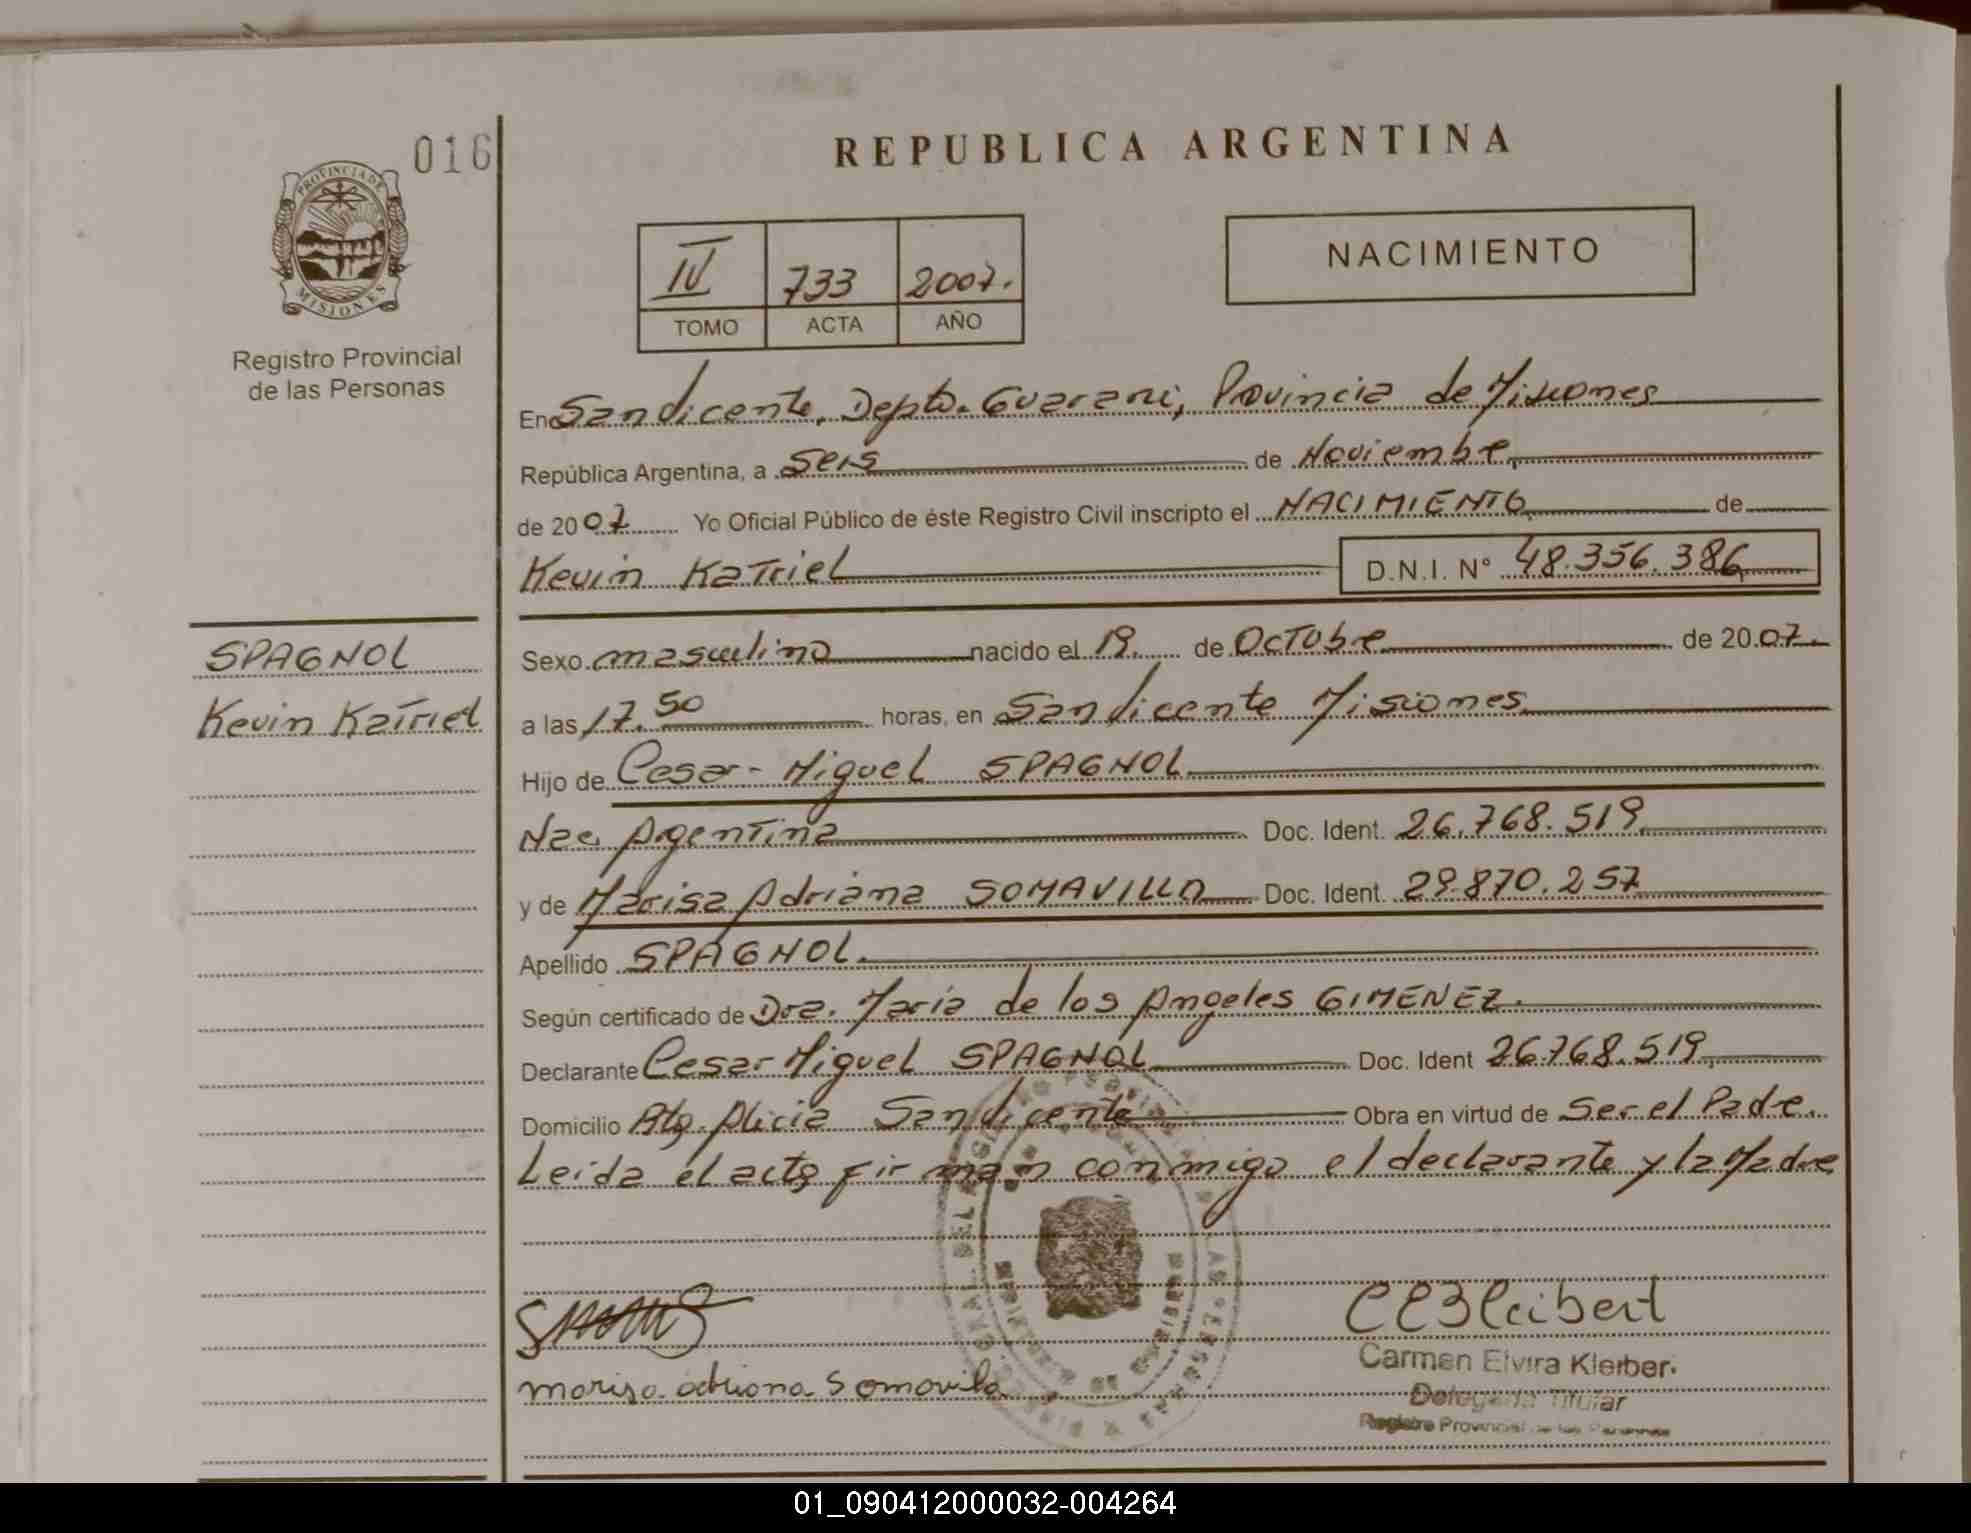 016
REPUBLICA ARGENTINA
PROVINCIA DE
MISIONES
Registro Provincial
de las Personas
IV 733 2007.
TOMO ACTA AÑO
NACIMIENTO
En San Vicente, Depto. Guarani, Provincia de Misiones
República Argentina, a Seis de Noviembre
de 2007 Yo Oficial Público de éste Registro Civil inscripto el NACIMIENTO de
Kevin Katriel D.N.I. N° 48.356.386
SPAGNOL
Kevin Katriel
Sexo masculino nacido el 19. de Octubre de 2007.
a las 17.50 horas, en San Vicente Misiones
Hijo de Cesar Miguel SPAGNOL
Nac. Argentina Doc. Ident. 26.768.519
y de Marisa Adriana SOMAVILLA Doc. Ident. 29.870.257
Apellido SPAGNOL.
Según certificado de Dra. María de los Angeles GIMENEZ.
Declarante Cesar Miguel SPAGNOL Doc. Ident 26.768.519
Domicilio Alicia San Vicente Obra en virtud de Ser el Padre.
Leída el acta firman conmigo el declarante y la Madre
marisa adriana Somavila
Carmen Elvira Kleiber
Delegada Titular
Registro Provincial de las Personas
01_090412000032-004264